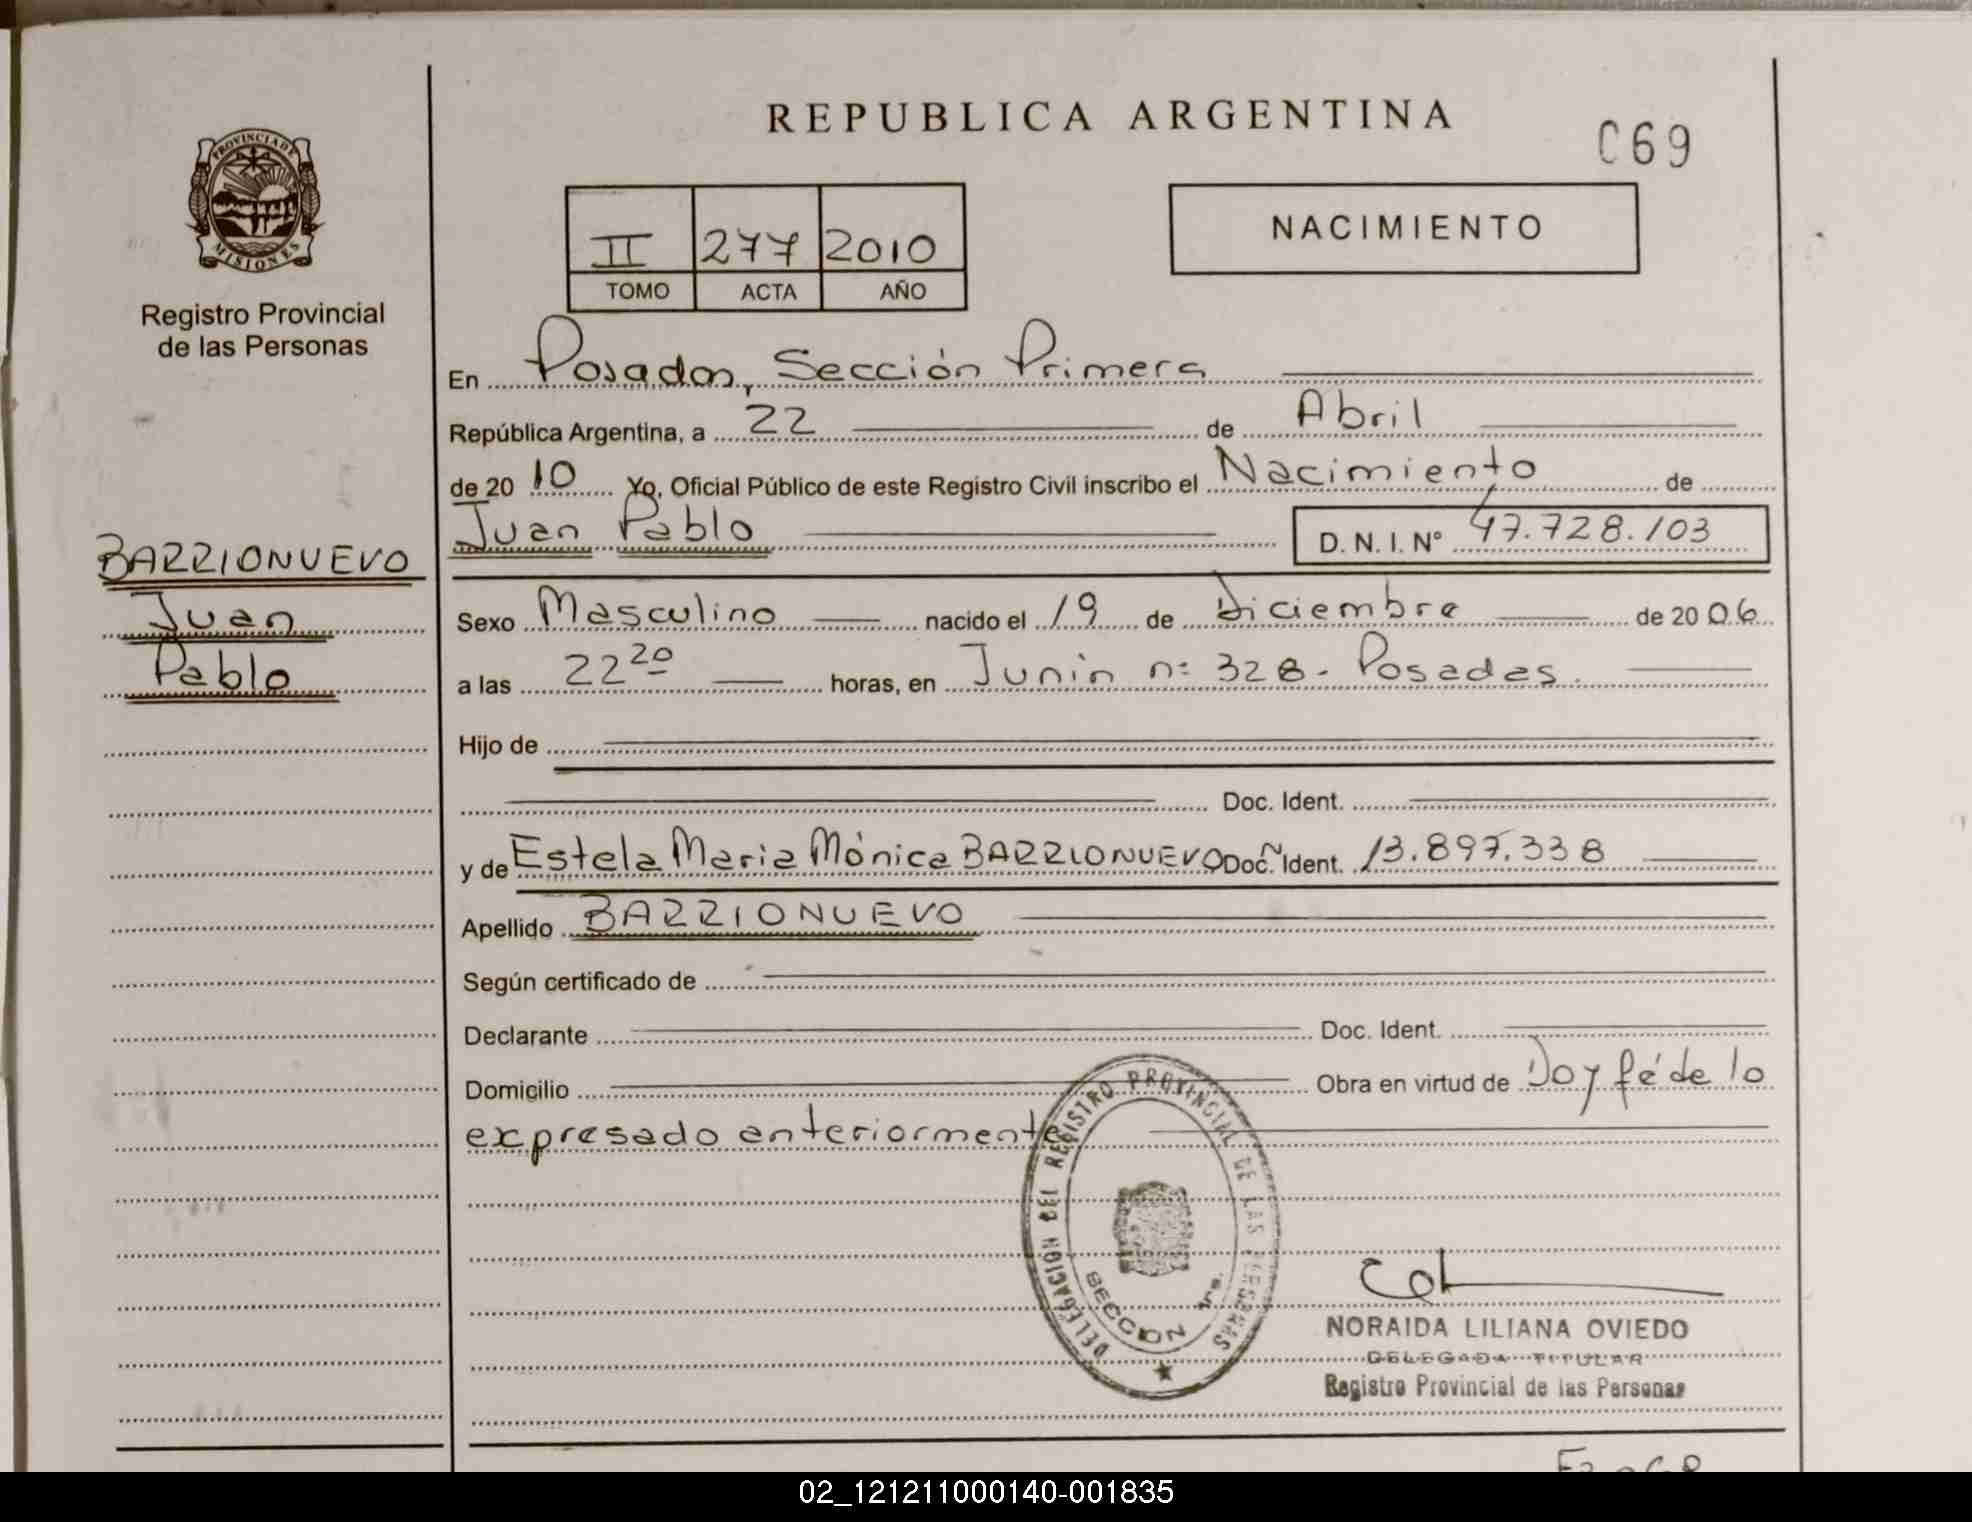 REPUBLICA ARGENTINA
C69
PROVINCIA DE MISIONES
Registro Provincial
de las Personas
II 277 2010
TOMO ACTA AÑO
NACIMIENTO
En Posadas, Sección Primera
República Argentina, a 22 de Abril
de 2010 Yo, Oficial Público de este Registro Civil inscribo el Nacimiento de
Juan Pablo D. N. I. Nº 47.728.103
BARRIONUEVO
Juan
Pablo
Sexo Masculino nacido el 19 de Diciembre de 2006
a las 22 20 horas, en Junin n: 328- Posadas.
Hijo de
Doc. Ident.
y de Estela Maria Mónica BARRIONUEVO Doc. Ident. 13.897.338
Apellido BARRIONUEVO
Según certificado de
Declarante Doc. Ident.
Domicilio Obra en virtud de Doy fé de lo
expresado anteriormente
DELEGACION DEL REGISTRO PROVINCIAL DE LAS PERSONAS
SECCION 1ra.
NORAIDA LILIANA OVIEDO
DELEGADA TITULAR
Registro Provincial de las Personas
02_121211000140-001835